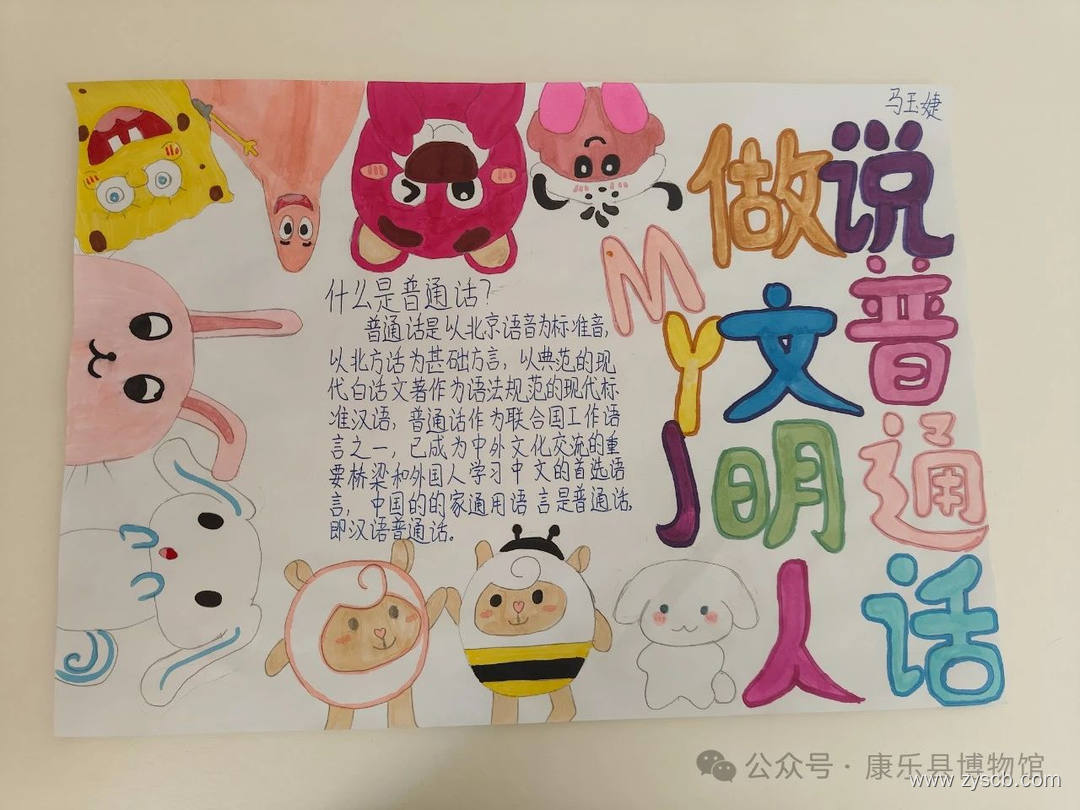 马玉婕
说普通话
做文明人
MYJ
什么是普通话?
普通话是以北京语音为标准音,
以北方话为基础方言,以典范的现
代白话文著作为语法规范的现代标
准汉语,普通话作为联合国工作语
言之一,已成为中外文化交流的重
要桥梁和外国人学习中文的首选语
言,中国的的家通用语言是普通话,
即汉语普通话。
公众号·康乐县博物馆
www.zyscb.com